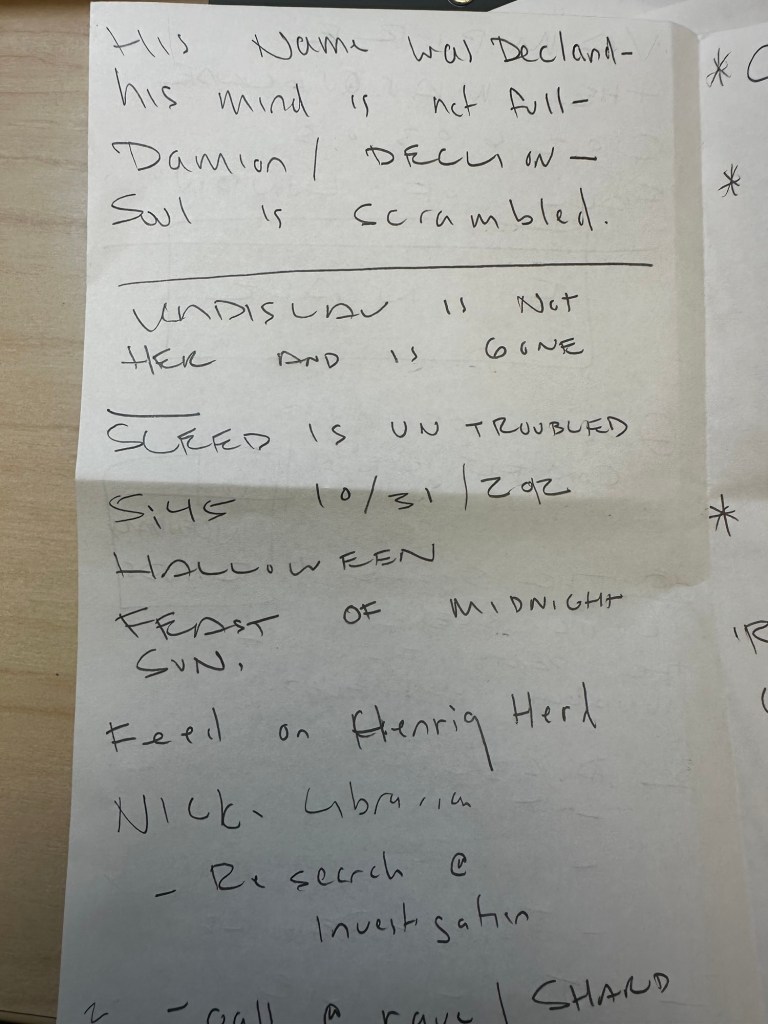 His Name was Decland-
his mind is not full-
Damion / DECLION-
Soul is scrambled.
VLADISLAV is Not
HER AND IS GONE
SLEEP IS UNTROUBLED
5:45 10/31/202
HALLOWEEN
FEAST OF MIDNIGHT
SUN.
Feed on Henrig Herd
NICK. Librarian
- Research @
Investigation
- call @ rave / SHARD
* C
*
*